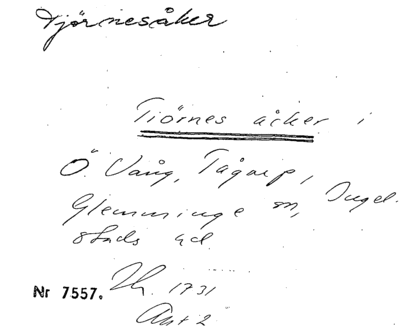 Tjörnesåker
Tiörnes åcker i
Ö. Vång, Tågarp,
Glemminge sn, Ingel-
stads hd
Nr 7557. Lh. 1731
Akt 2